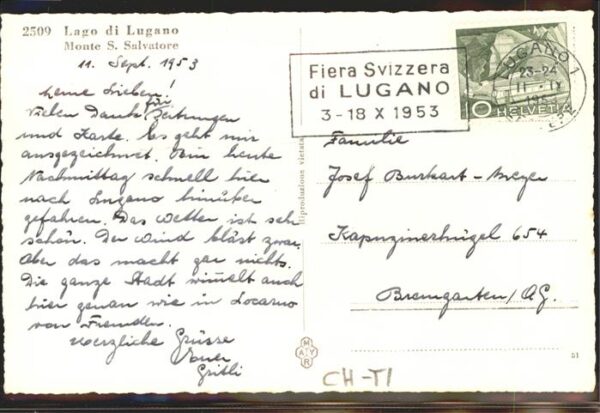 2509 Lago di Lugano
Monte S. Salvatore
11. Sept. 1953
Meine Lieben!
Vielen Dank für Zeitungen
und Karte. Es geht mir
ausgezeichnet. Bin heute
Nachmittag schnell hier
nach Lugano hinüber
gefahren. Das Wetter ist sehr
schön. Der Wind bläst zwar.
Aber das macht gar nichts.
Die ganze Stadt wimmelt auch
hier genau wie in Locarno
von Fremden.
Herzliche Grüsse
Euer
Gritli
Riproduzione vietata
MAYR
Fiera Svizzera
di LUGANO
3-18 X 1953
LUGANO 1
23-24
11 IX
10 HELVETIA
Familie
Josef Burkart-Meyer
Kapuzinerhügel 654
Bremgarten/AG.
51
CH-TI